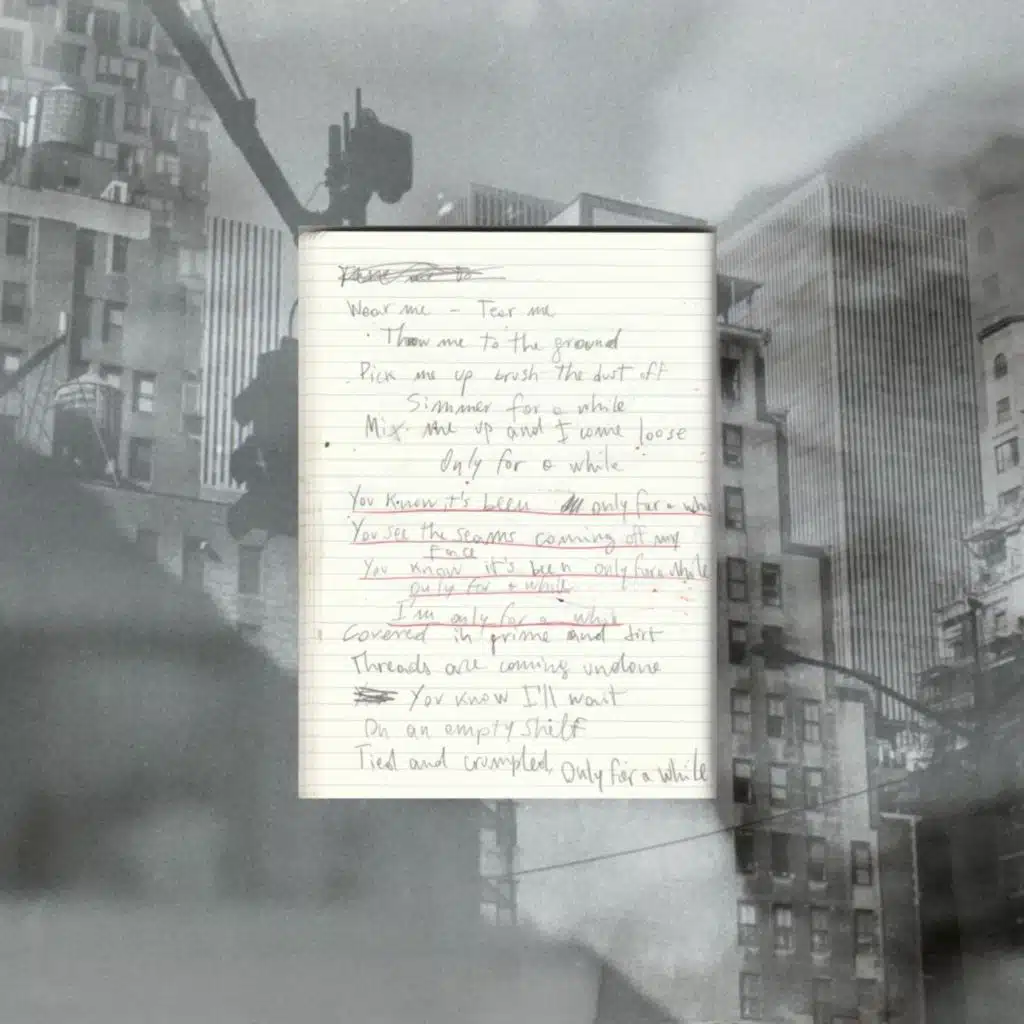 Wear me - Tear me
Throw me to the ground
Pick me up brush the dust off
Simmer for a while
Mix me up and I come loose
Only for a while
You know it's been only for a while
You see the seams coming off my
Face
You know it's been only for a while
only for a while
I'm only for a while
Covered in grime and dirt
Threads are coming undone
You know I'll wait
On an empty shelf
Tied and crumpled, Only for a while